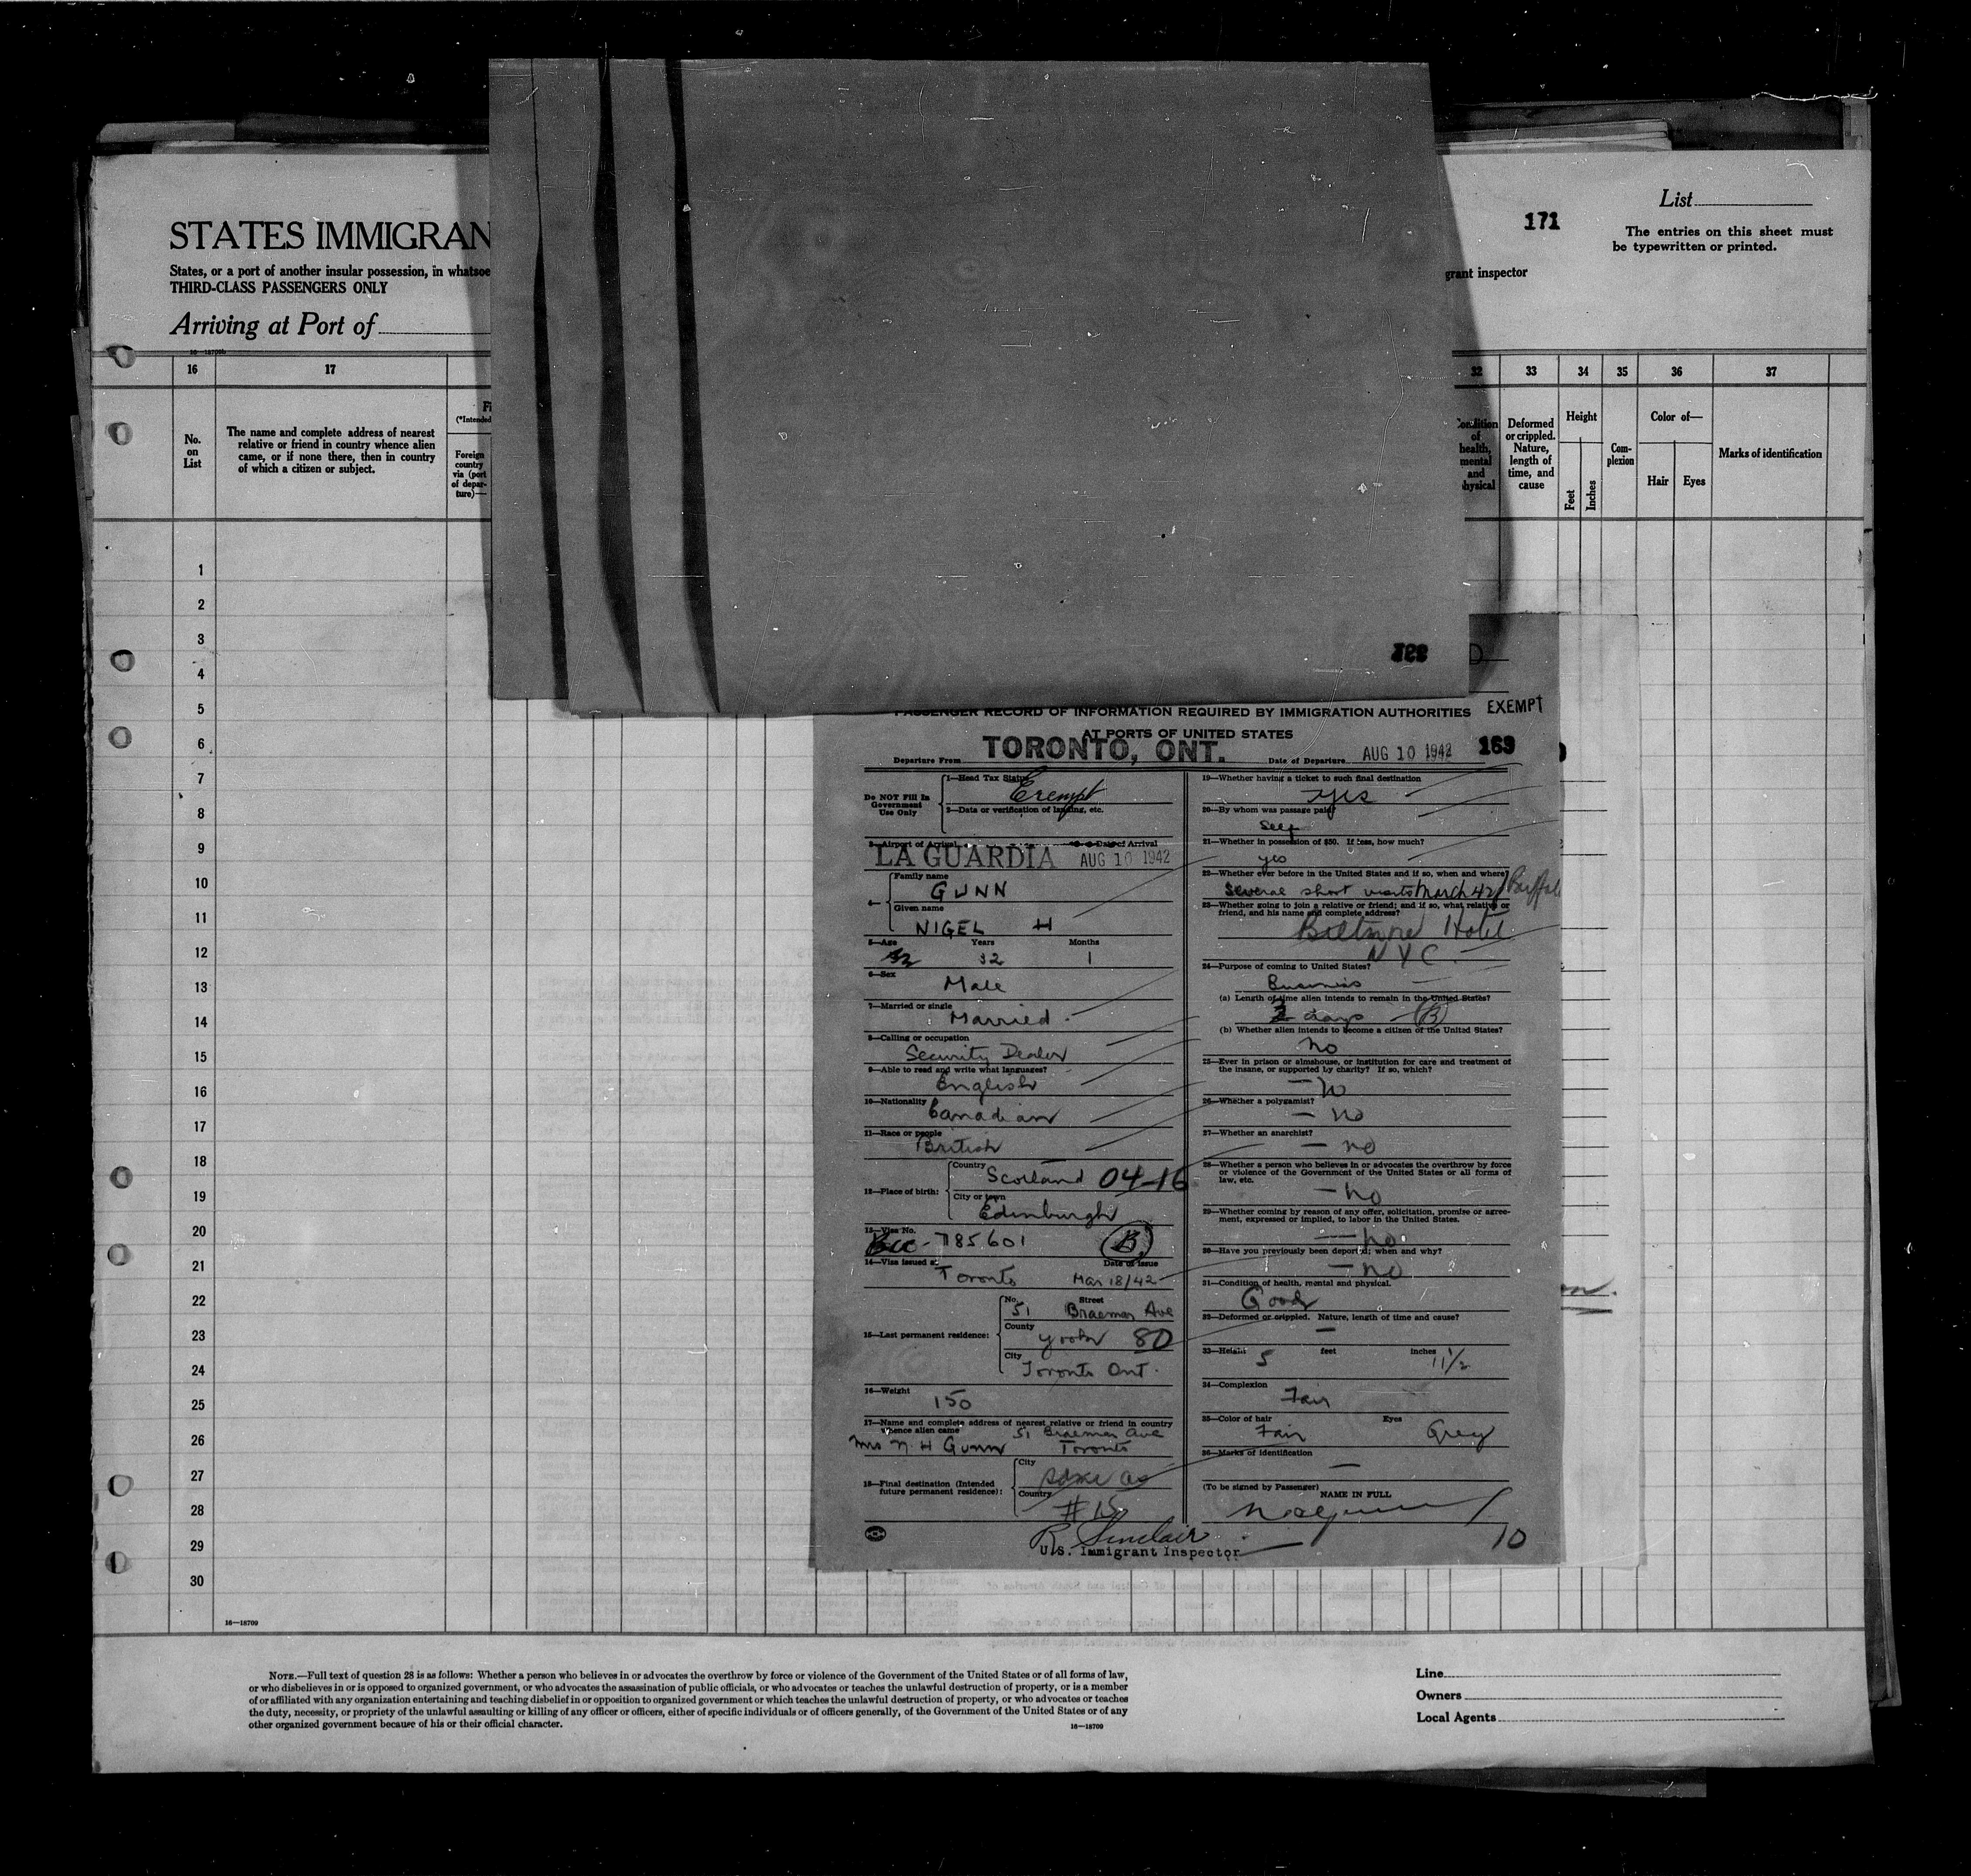 STATES IMMIGRAN
States, or a port of another insular possession, in whatsoe
THIRD-CLASS PASSENGERS ONLY
Arriving at Port of
16—18709b
171
List
The entries on this sheet must
be typewritten or printed.
grant inspector
16 17 32 33 34 35 36 37
No.
on
List
The name and complete address of nearest
relative or friend in country whence alien
came, or if none there, then in country
of which a citizen or subject.
(*Intended
Foreign
country
via (port
of depar-
ture)—
Condition
of
health,
mental
and
physical
Deformed
or crippled.
Nature,
length of
time, and
cause
Height
Feet
Inches
Com-
plexion
Color of—
Hair Eyes
Marks of identification
1
2
3
4
5
6
7
8
9
10
11
12
13
14
15
16
17
18
19
20
21
22
23
24
25
26
27
28
29
30
16—18709
PASSENGER RECORD OF INFORMATION REQUIRED BY IMMIGRATION AUTHORITIES EXEMPT
AT PORTS OF UNITED STATES
Departure From TORONTO, ONT. Date of Departure AUG 10 1942 169
Do NOT Fill In
Government
Use Only
1—Head Tax Status
Exempt
2—Data or verification of landing, etc.
3—Airport of Arrival Date of Arrival
LA GUARDIA AUG 10 1942
4— Family name
GUNN
Given name
NIGEL H
5—Age Years Months
32 32 1
6—Sex
Male
7—Married or single
Married
8—Calling or occupation
Security Dealer
9—Able to read and write what languages?
English
10—Nationality
Canadian
11—Race or people
British
12—Place of birth:
Country Scotland 04-16
City or town
Edinburgh
13—Visa No.
785601 B
14—Visa issued at Date of issue
Toronto Mar 18/42
15—Last permanent residence:
No. Street
51 Braemar Ave
County
York 80
City
Toronto Ont.
16—Weight
150
17—Name and complete address of nearest relative or friend in country
whence alien came 51 Braemar Ave
Mrs N. H Gunn Toronto
18—Final destination (Intended
future permanent residence):
City
same as
Country
#15
R Sinclair
U.S. Immigrant Inspector
19—Whether having a ticket to such final destination
yes
20—By whom was passage paid?
Self
21—Whether in possession of $50. If less, how much?
yes
22—Whether ever before in the United States and if so, when and where?
Several short visits March 42 Buffalo
23—Whether going to join a relative or friend; and if so, what relative or
friend, and his name and complete address?
Biltmore Hotel
N Y C.
24—Purpose of coming to United States?
Business
(a) Length of time alien intends to remain in the United States?
days B
(b) Whether alien intends to become a citizen of the United States?
No
25—Ever in prison or almshouse, or institution for care and treatment of
the insane, or supported by charity? If so, which?
— No
26—Whether a polygamist?
— no
27—Whether an anarchist?
— no
28—Whether a person who believes in or advocates the overthrow by force
or violence of the Government of the United States or all forms of
law, etc.
— no
29—Whether coming by reason of any offer, solicitation, promise or agree-
ment, expressed or implied, to labor in the United States.
— no
30—Have you previously been deported; when and why?
— no
31—Condition of health, mental and physical.
Good
32—Deformed or crippled. Nature, length of time and cause?
—
33—Height feet inches
5 11½
34—Complexion
Fair
35—Color of hair Eyes
Fair Grey
36—Marks of identification
—
(To be signed by Passenger)
NAME IN FULL
10
NOTE.—Full text of question 28 is as follows: Whether a person who believes in or advocates the overthrow by force or violence of the Government of the United States or of all forms of law,
or who disbelieves in or is opposed to organized government, or who advocates the assassination of public officials, or who advocates or teaches the unlawful destruction of property, or is a member
of or affiliated with any organization entertaining and teaching disbelief in or opposition to organized government or which teaches the unlawful destruction of property, or who advocates or teaches
the duty, necessity, or propriety of the unlawful assaulting or killing of any officer or officers, either of specific individuals or of officers generally, of the Government of the United States or of any
other organized government because of his or their official character.
16—18709
Line
Owners
Local Agents